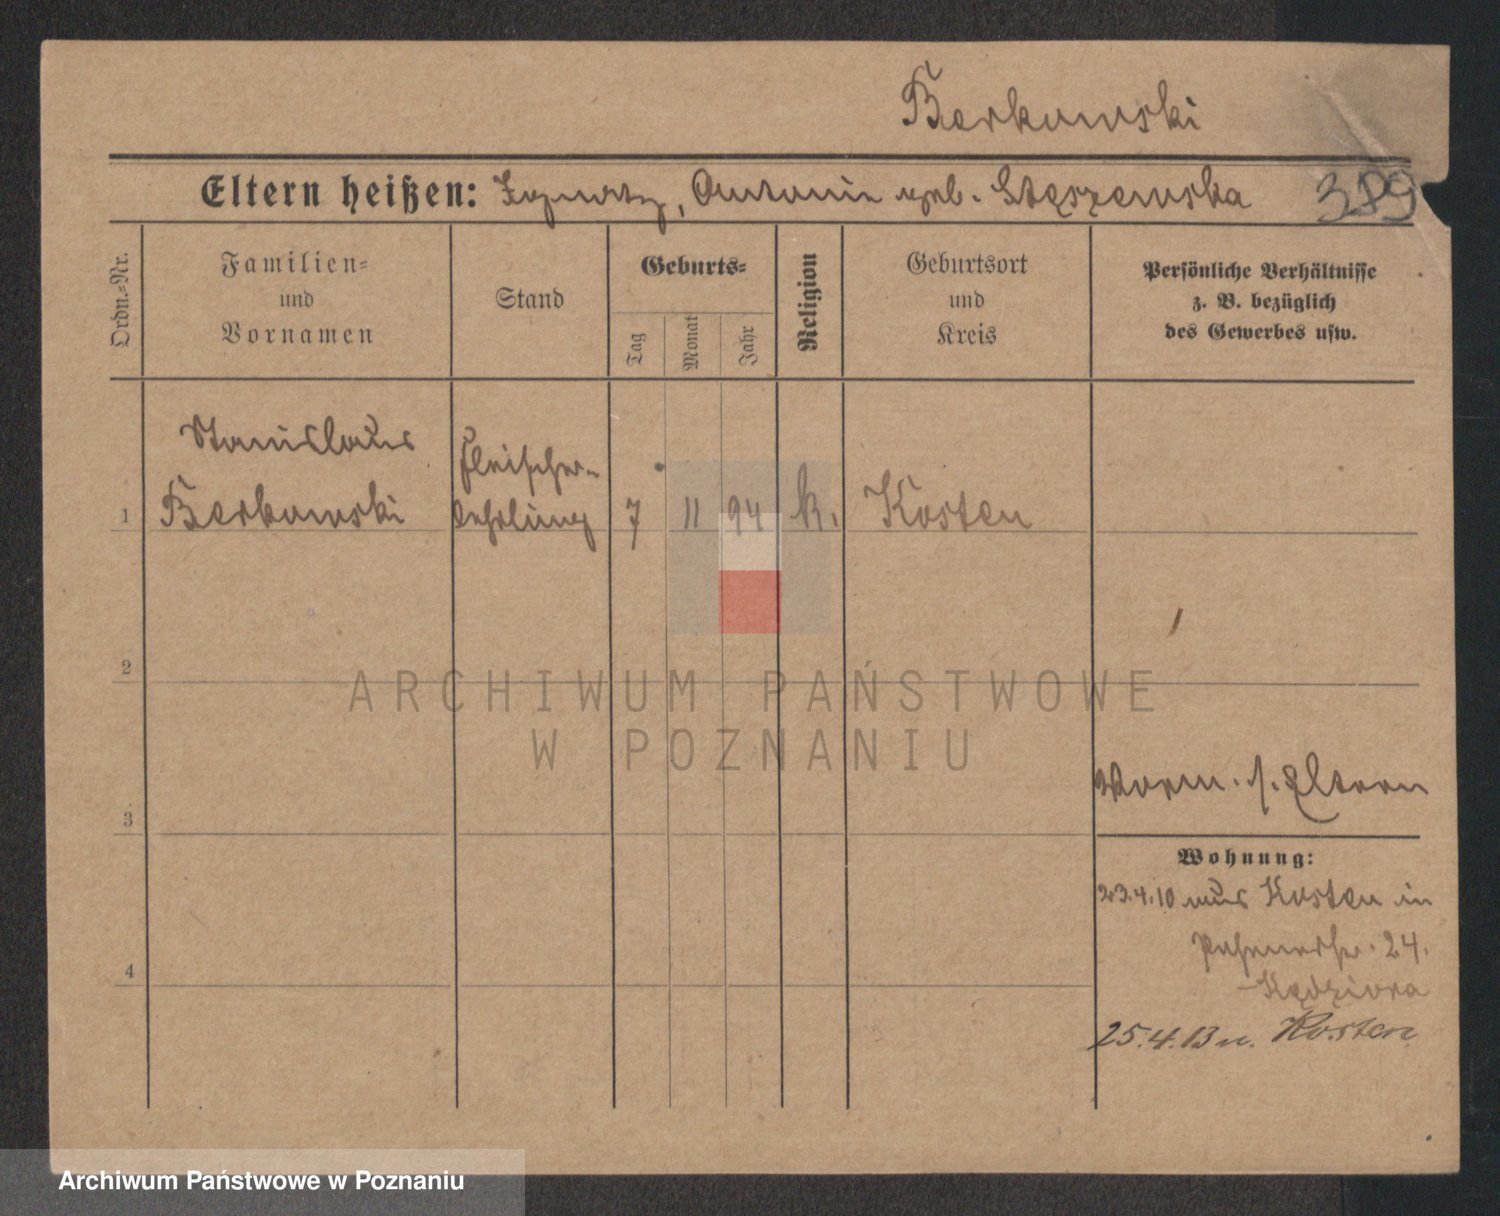 Berkowski
Eltern heißen: Ignatz, Antonie geb. Stęszewska
389
Ordn.-Nr.
Familien-
und
Vornamen
Stand
Geburts-
Tag
Monat
Jahr
Religion
Geburtsort
und
Kreis
Persönliche Verhältnisse
z. B. bezüglich
des Gewerbes usw.
Stanislaus
Berkowski
Fleischer-
lehrling
1
7
11
94
k.
Kosten
2
3
4
ARCHIWUM PAŃSTWOWE
W POZNANIU
Vorm. s. Eltern
Wohnung:
23.4.10 aus Kosten in
24.
Kędziora
25.4.13 n. Kosten
Archiwum Państwowe w Poznaniu